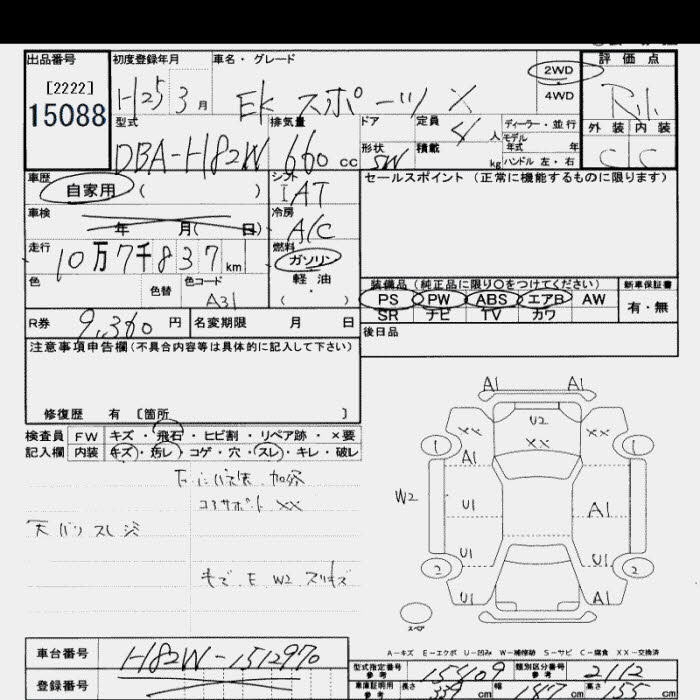 出品番号 初度登録年月 車名・グレード 2WD 評価点
[2222] 4WD
15088 H25 3月 EK スポーツ X
型式 排気量 ドア 定員 人 ディーラー・並行 外装 内装
モデル年式 年 C C
DBA-H82W 660cc 形状 5W 積載 kg ハンドル 左・右
車歴 自家用 ( ) シフト IAT セールスポイント (正常に機能するものに限ります)
車検 年 月( 日) 冷房 A/C
走行 10万7千837km 燃料 ガソリン
色 色替 色コード A31 軽油 ( )
装備品 (純正品に限り○をつけてください) 新車保証書
PS PW ABS エアB AW 有・無
SR ナビ TV カワ
R券 9,360円 名変期限 月 日 後日品
注意事項申告欄(不具合内容等は具体的に記入して下さい)
修復歴 有 [箇所 ]
検査員 FW キズ・飛石・ヒビ割・リペア跡・×要
記入欄 内装 キズ・汚レ・コゲ・穴・スレ・キレ・破レ
コアサポート XX
A1 A1
XX U2 XX
XX
1 A1 1
W2 U1 A1
U1 U1
2 2
U1 A1
スペア
A-キズ E-エクボ U-凹み W-補修跡 S-サビ C-腐食 XX-交換済
車台番号 H82W-1512970
登録番号
型式指定番号 参考 15409 類別区分番号 参考 2112
車庫証明用 参考 長さ 339cm 幅 147cm 高さ 155cm